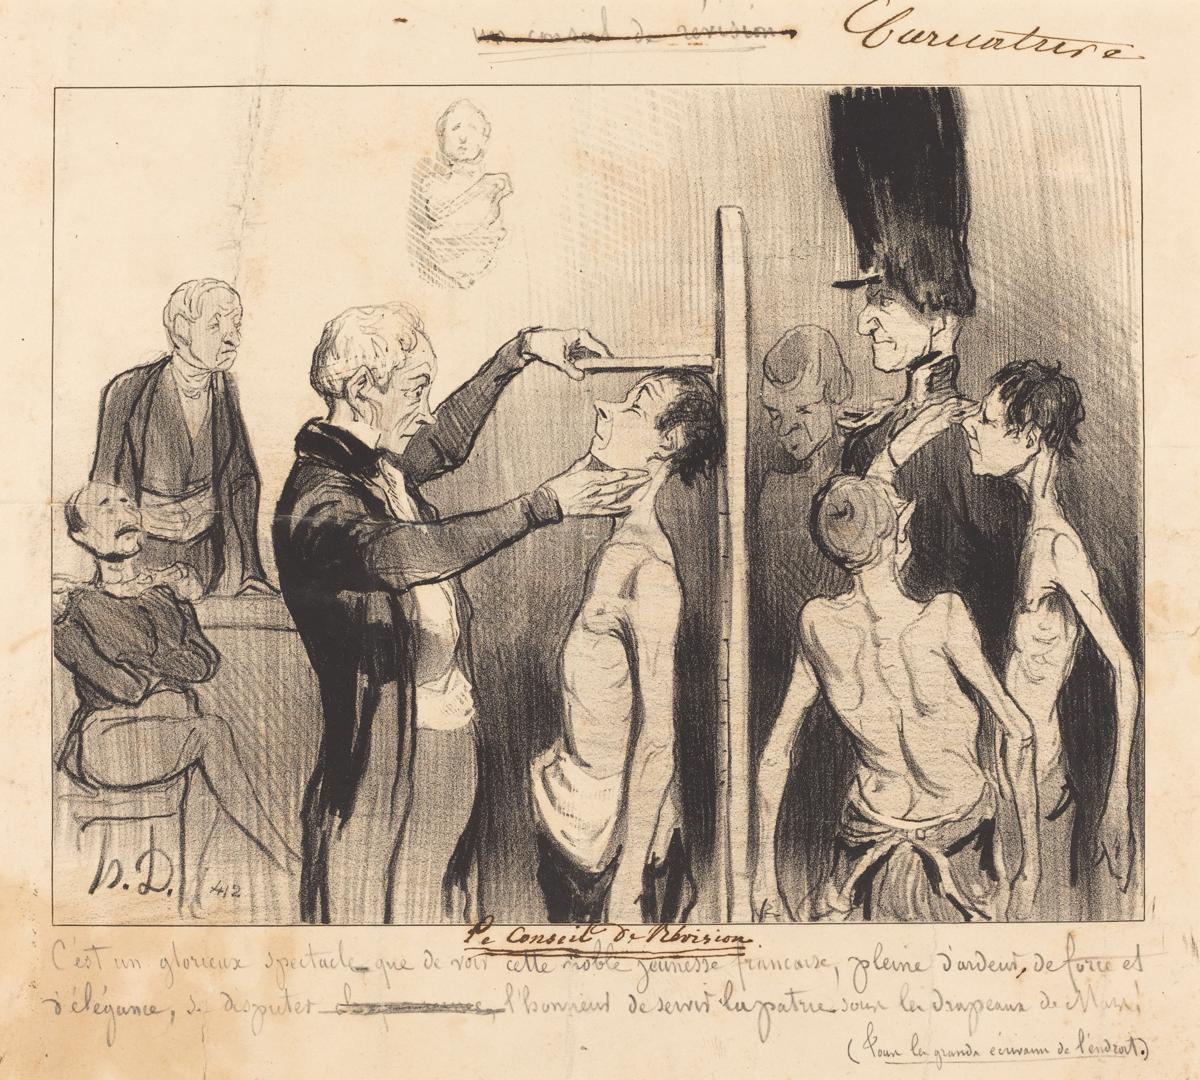 un conseil de révision
Caricature
h. D.
412
Le Conseil de Révision.
C'est un glorieux spectacle que de voir cette noble jeunesse francaise, pleine d'ardeur, de force et
d'élégance, se disputer l'honneur de servir la patrie sous les drapeaux de Mars!
(Tous les grands écrivains de l'endroit.)